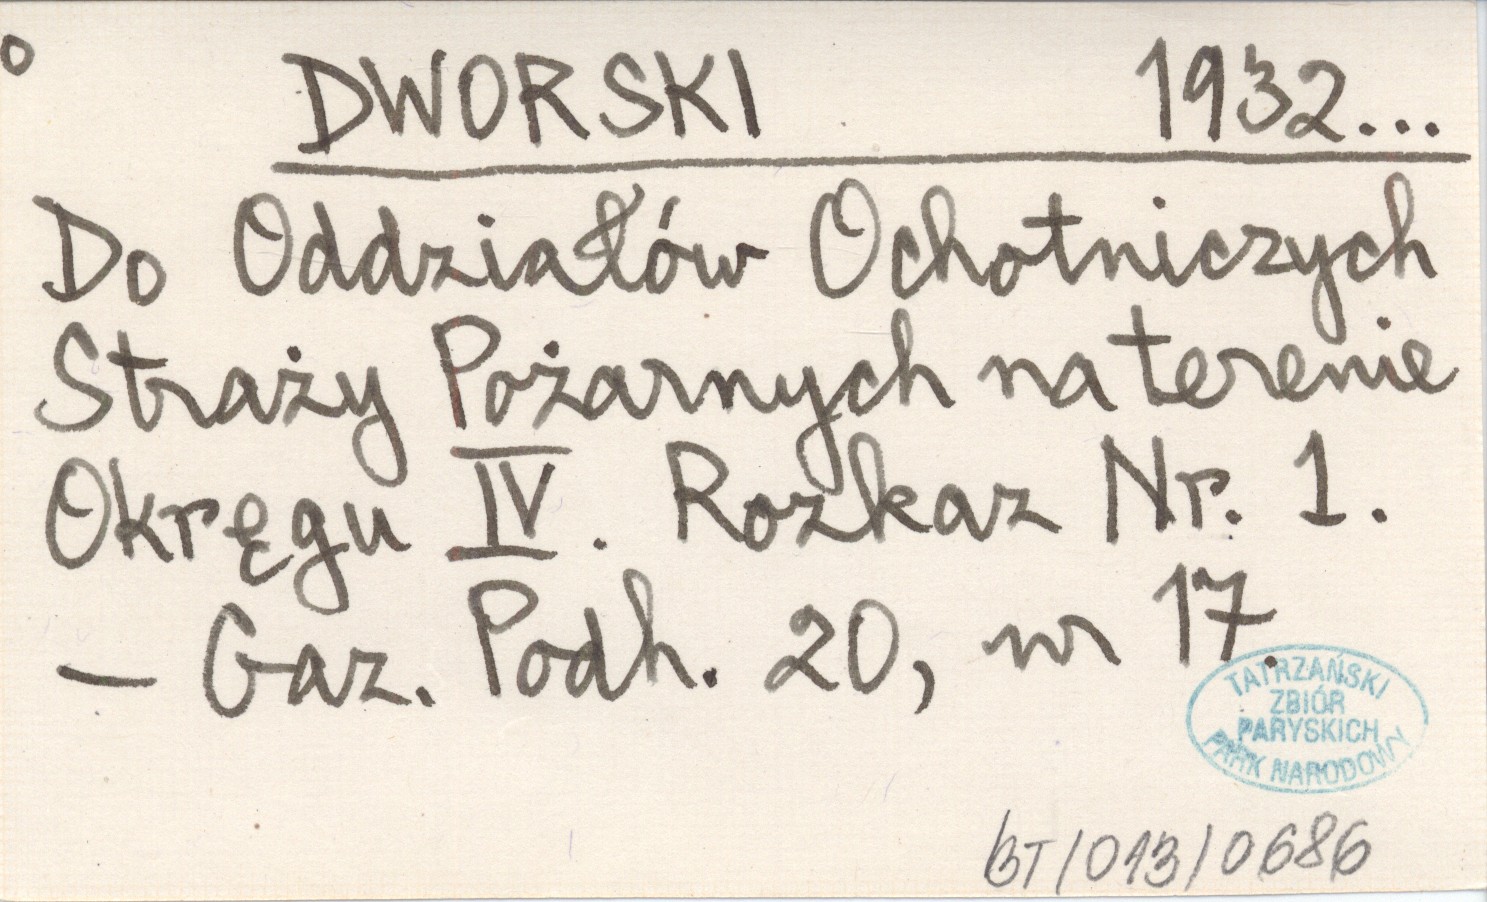 o DWORSKI 1932...
Do Oddziałów Ochotniczych
Straży Pożarnych na terenie
Okręgu IV. Rozkaz Nr. 1.
— Gaz. Podh. 20, nr 17.
TATRZAŃSKI
ZBIÓR
PARYSKICH
PARK NARODOWY
BT/013/0686